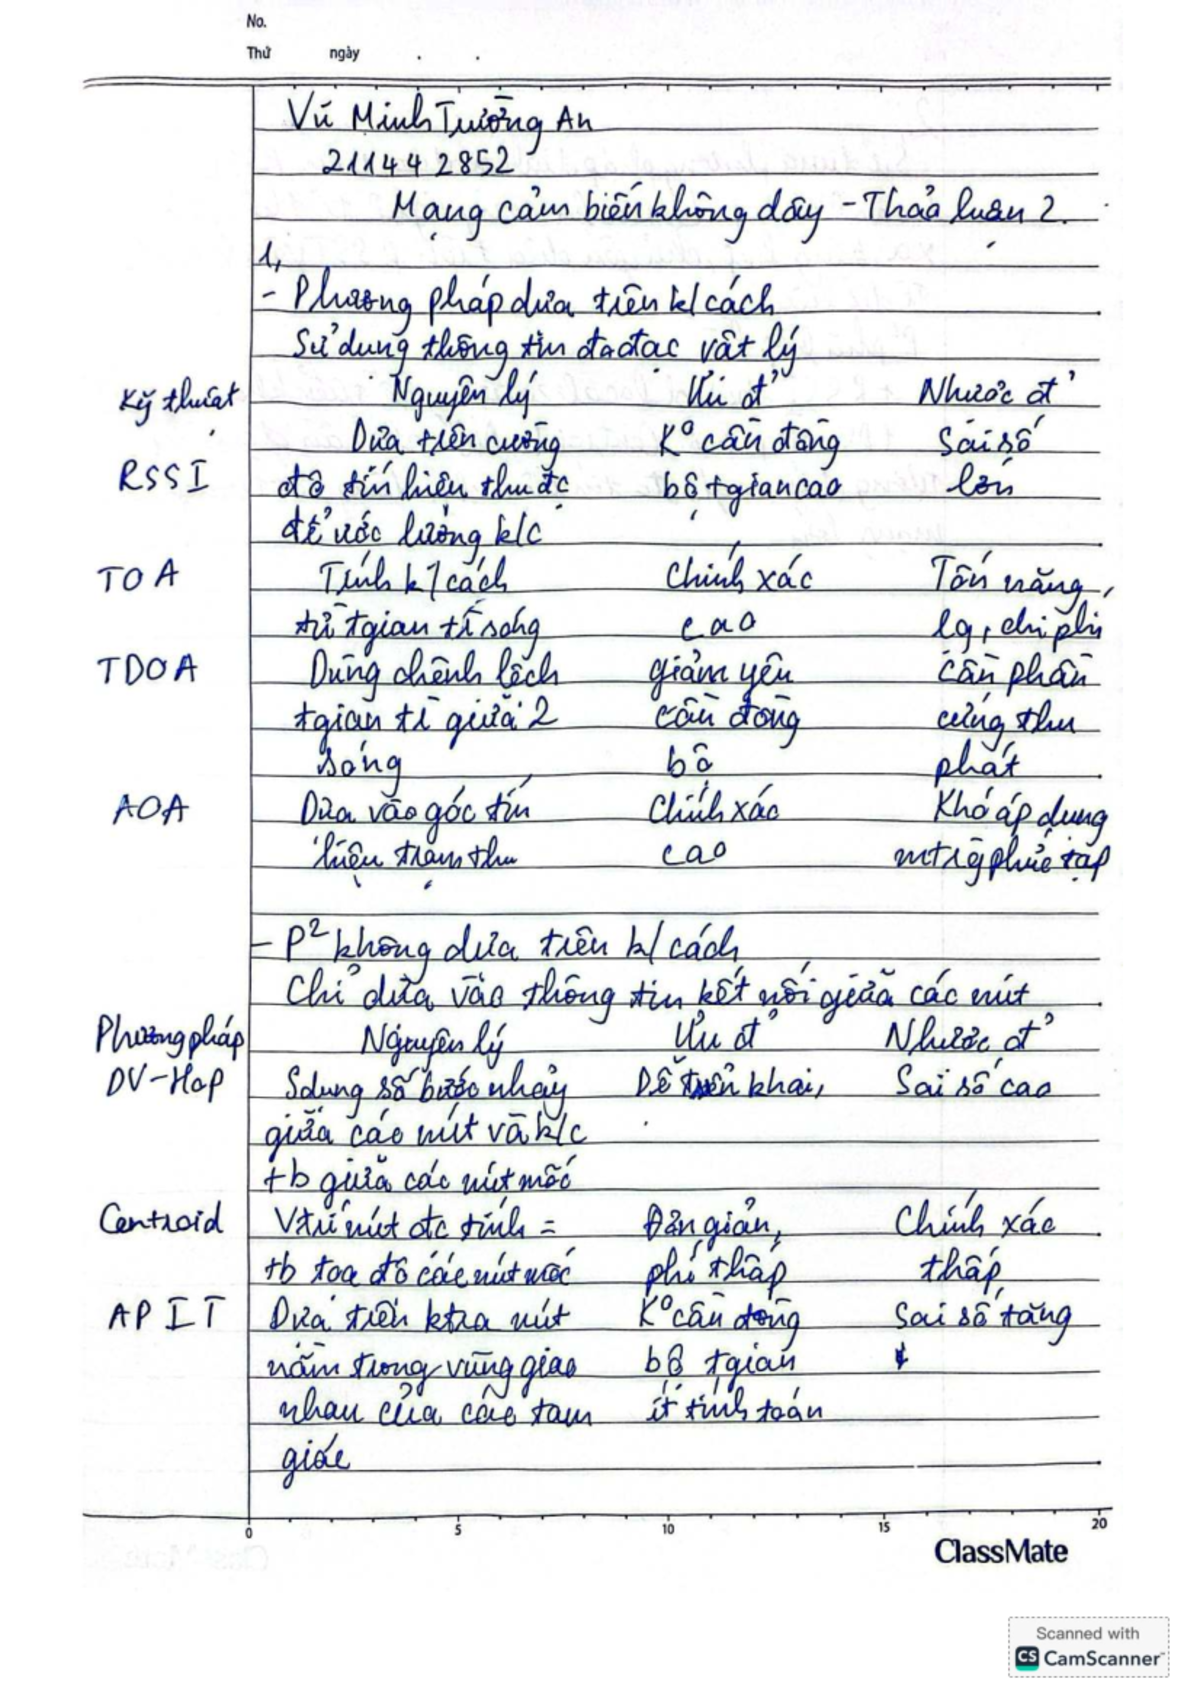 No.
Thứ ngày . .
Vũ Minh Trường An
211442852
Mạng cảm biến không dây - Thảo luận 2.
1,
- Phương pháp dựa trên k/cách
Sử dụng thông tin đo đạc vật lý
Kỹ thuật Nguyên lý Ưu đ' Nhược đ'
Dựa trên cường K° cần đồng Sai số
RSSI độ tín hiệu thu đc bộ tgian cao lớn
để ước lượng k/c
TOA Tính k/cách Chính xác Tốn năng
từ tgian tr sóng cao lg, chi phí
TDOA Dùng chênh lệch giảm yêu Cần phần
tgian tr giữa 2 cầu đồng cứng thu
sóng bộ phát
AOA Dựa vào góc tín Chính xác Khó áp dụng
hiệu trạm thu cao mtrg phức tạp
- P² không dựa trên k/cách
Chỉ dựa vào thông tin kết nối giữa các nút
Phương pháp Nguyên lý Ưu đ' Nhược đ'
DV-Hop Sdụng số bước nhảy Dễ triển khai, Sai số cao
giữa các nút và k/c
tb giữa các nút mốc
Centroid Vtrí nút đc tính = Đơn giản, Chính xác
tb toạ độ các nút mốc phí thấp thấp
APIT Dựa trên ktra nút K° cần đồng Sai số tăng
nằm trong vùng giao bộ tgian
nhau của các tam ít tính toán
giác
0 5 10 15 20
ClassMate
Scanned with
CS CamScanner